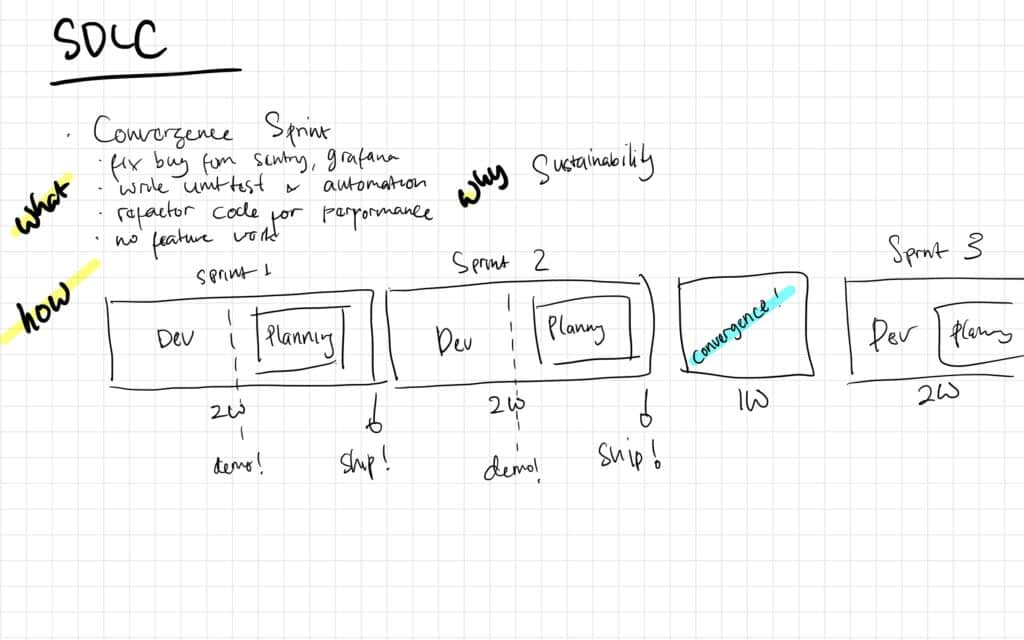 SDLC
Convergence Sprint
fix bug from sentry, grafana
write unittest & automation
refactor code for performance
no feature work
what
why
Sustainability
how
Sprint 1
Sprint 2
Sprint 3
Dev
Planning
Dev
Planning
Convergence!
Dev
Planning
2W
2W
1W
2W
demo!
ship!
demo!
ship!